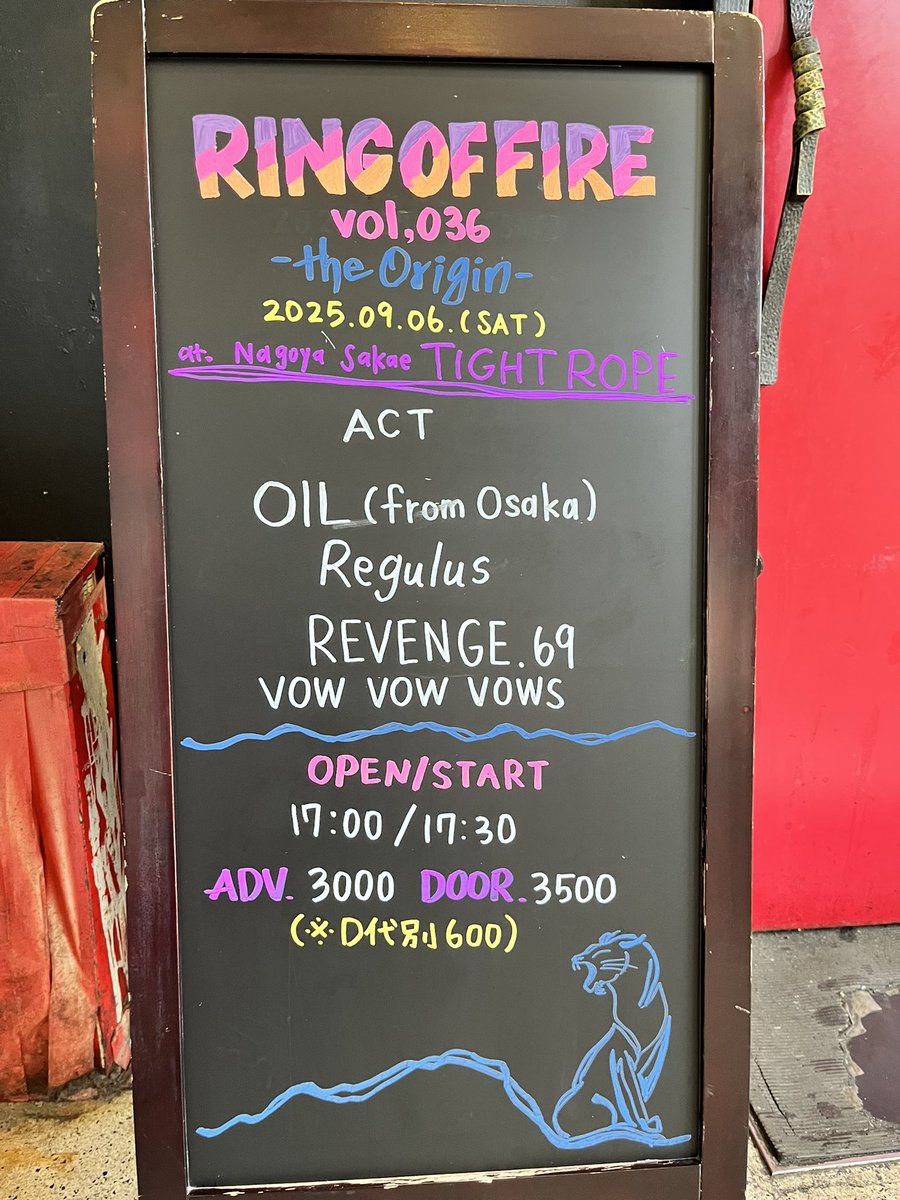 RING OF FIRE
vol,036
-the Origin-
2025.09.06.(SAT)
at. Nagoya Sakae TIGHT ROPE
ACT
OIL (from Osaka)
Regulus
REVENGE.69
VOW VOW VOWS
OPEN/START
17:00/17:30
ADV. 3000 DOOR. 3500
(※D代別600)